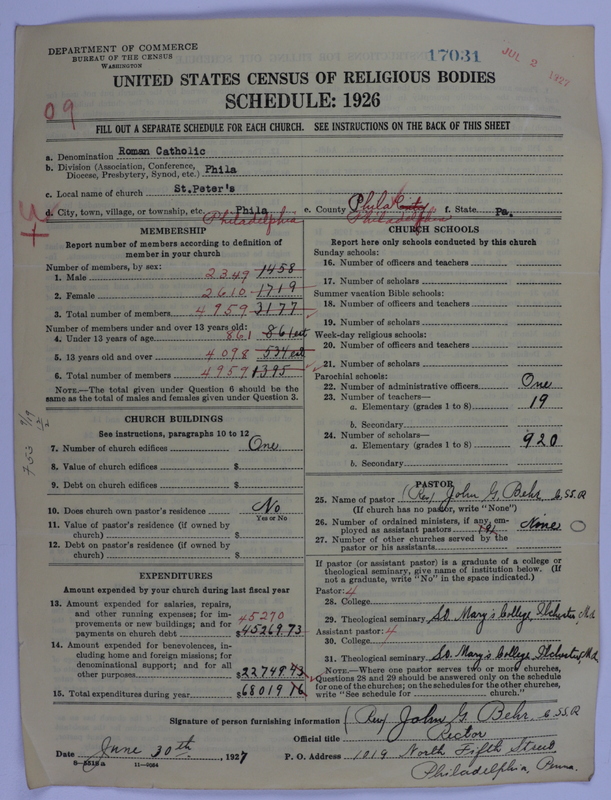 DEPARTMENT OF COMMERCE
BUREAU OF THE CENSUS
WASHINGTON
17031
JUL 2 1927
UNITED STATES CENSUS OF RELIGIOUS BODIES
SCHEDULE: 1926
09
FILL OUT A SEPARATE SCHEDULE FOR EACH CHURCH. SEE INSTRUCTIONS ON THE BACK OF THIS SHEET
a. Denomination Roman Catholic
b. Division (Association, Conference, Diocese, Presbytery, Synod, etc.) Phila
c. Local name of church St.Peter's
d. City, town, village, or township, etc. Phila Philadelphia e. County Phila Philadelphia f. State Pa.
MEMBERSHIP
Report number of members according to definition of
member in your church
Number of members, by sex:
1. Male 2349 1458
2. Female 2610 1719
3. Total number of members 4959 3177
Number of members under and over 13 years old:
4. Under 13 years of age 861 861 est
5. 13 years old and over 4098 534 est
6. Total number of members 4959 1395
NOTE.—The total given under Question 6 should be the
same as the total of males and females given under Question 3.
CHURCH BUILDINGS
See instructions, paragraphs 10 to 12
7. Number of church edifices One
8. Value of church edifices $
9. Debt on church edifices $
10. Does church own pastor's residence? No
Yes or No
11. Value of pastor's residence (if owned by
church) $
12. Debt on pastor's residence (if owned by
church) $
EXPENDITURES
Amount expended by your church during last fiscal year
13. Amount expended for salaries, repairs,
and other running expenses; for im-
provements or new buildings; and for 45270
payments on church debt $45269.73
14. Amount expended for benevolences, in-
cluding home and foreign missions; for
denominational support; and for all
other purposes $22748.43
15. Total expenditures during year $68019 16
CHURCH SCHOOLS
Report here only schools conducted by this church
Sunday schools:
16. Number of officers and teachers
17. Number of scholars
Summer vacation Bible schools:
18. Number of officers and teachers
19. Number of scholars
Week-day religious schools:
20. Number of officers and teachers
21. Number of scholars
Parochial schools:
22. Number of administrative officers One
23. Number of teachers—
a. Elementary (grades 1 to 8) 19
b. Secondary
24. Number of scholars—
a. Elementary (grades 1 to 8) 920
b. Secondary
PASTOR
25. Name of pastor (Rev) John G. Behr, C.SS.R
(If church has no pastor, write "None")
26. Number of ordained ministers, if any, em-
ployed as assistant pastors None
27. Number of other churches served by the
pastor or his assistants
If pastor (or assistant pastor) is a graduate of a college or
theological seminary, give name of institution below. (If
not a graduate, write "No" in the space indicated.)
Pastor: 4
28. College
29. Theological seminary St. Mary's College, Ilchester, Md
Assistant pastor: 4
30. College
31. Theological seminary St. Mary's College, Ilchester, Md
NOTE.—Where one pastor serves two or more churches,
Questions 28 and 29 should be answered only on the schedule
for one of the churches; on the schedules for the other churches,
write "See schedule for church."
Signature of person furnishing information (Rev) John G Behr, C.SS.R
Official title Rector
Date June 30th, 1927 P. O. Address 1019 North Fifth Street
Philadelphia, Penna.
11—9034